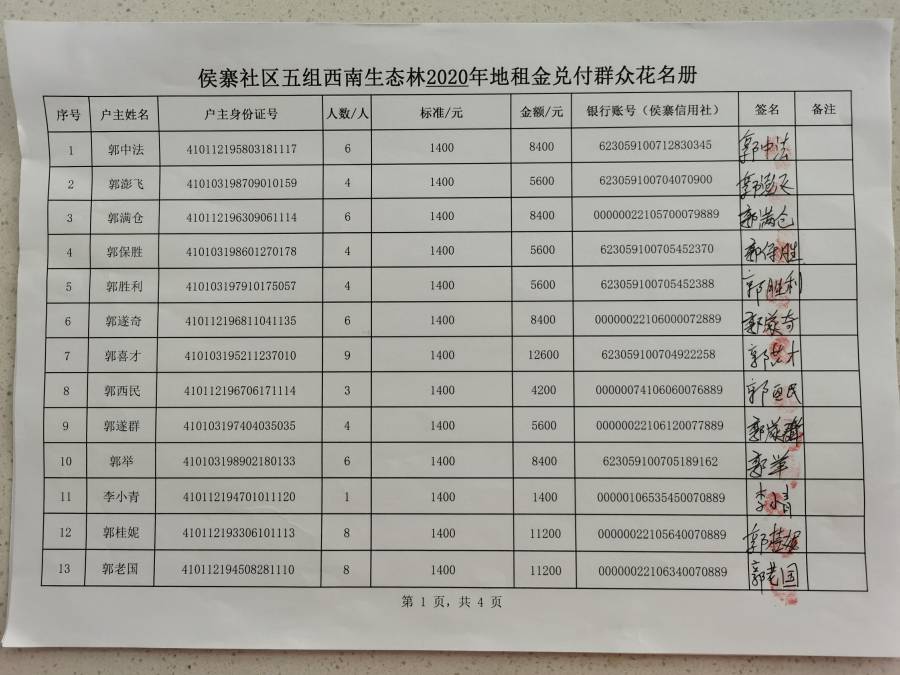 侯寨社区五组西南生态林2020年地租金兑付群众花名册
序号 户主姓名 户主身份证号 人数/人 标准/元 金额/元 银行账号（侯寨信用社） 签名 备注
1 郭中法 410112195803181117 6 1400 8400 623059100712830345 郭中法
2 郭澎飞 410103198709010159 4 1400 5600 623059100704070900 郭澎飞
3 郭满仓 410112196309061114 6 1400 8400 00000022105700079889 郭满仓
4 郭保胜 410103198601270178 4 1400 5600 623059100705452370 郭保胜
5 郭胜利 410103197910175057 4 1400 5600 623059100705452388 郭胜利
6 郭遂奇 410112196811041135 6 1400 8400 00000022106000072889 郭遂奇
7 郭喜才 410103195211237010 9 1400 12600 623059100704922258 郭喜才
8 郭西民 410112196706171114 3 1400 4200 00000074106060076889 郭西民
9 郭遂群 410103197404035035 4 1400 5600 00000022106120077889 郭遂群
10 郭举 410103198902180133 6 1400 8400 623059100705189162 郭举
11 李小青 410112194701011120 1 1400 1400 00000106535450070889 李小青
12 郭桂妮 410112193306101113 8 1400 11200 00000022105640070889 郭桂妮
13 郭老国 410112194508281110 8 1400 11200 00000022106340070889 郭老国
第 1 页，共 4 页